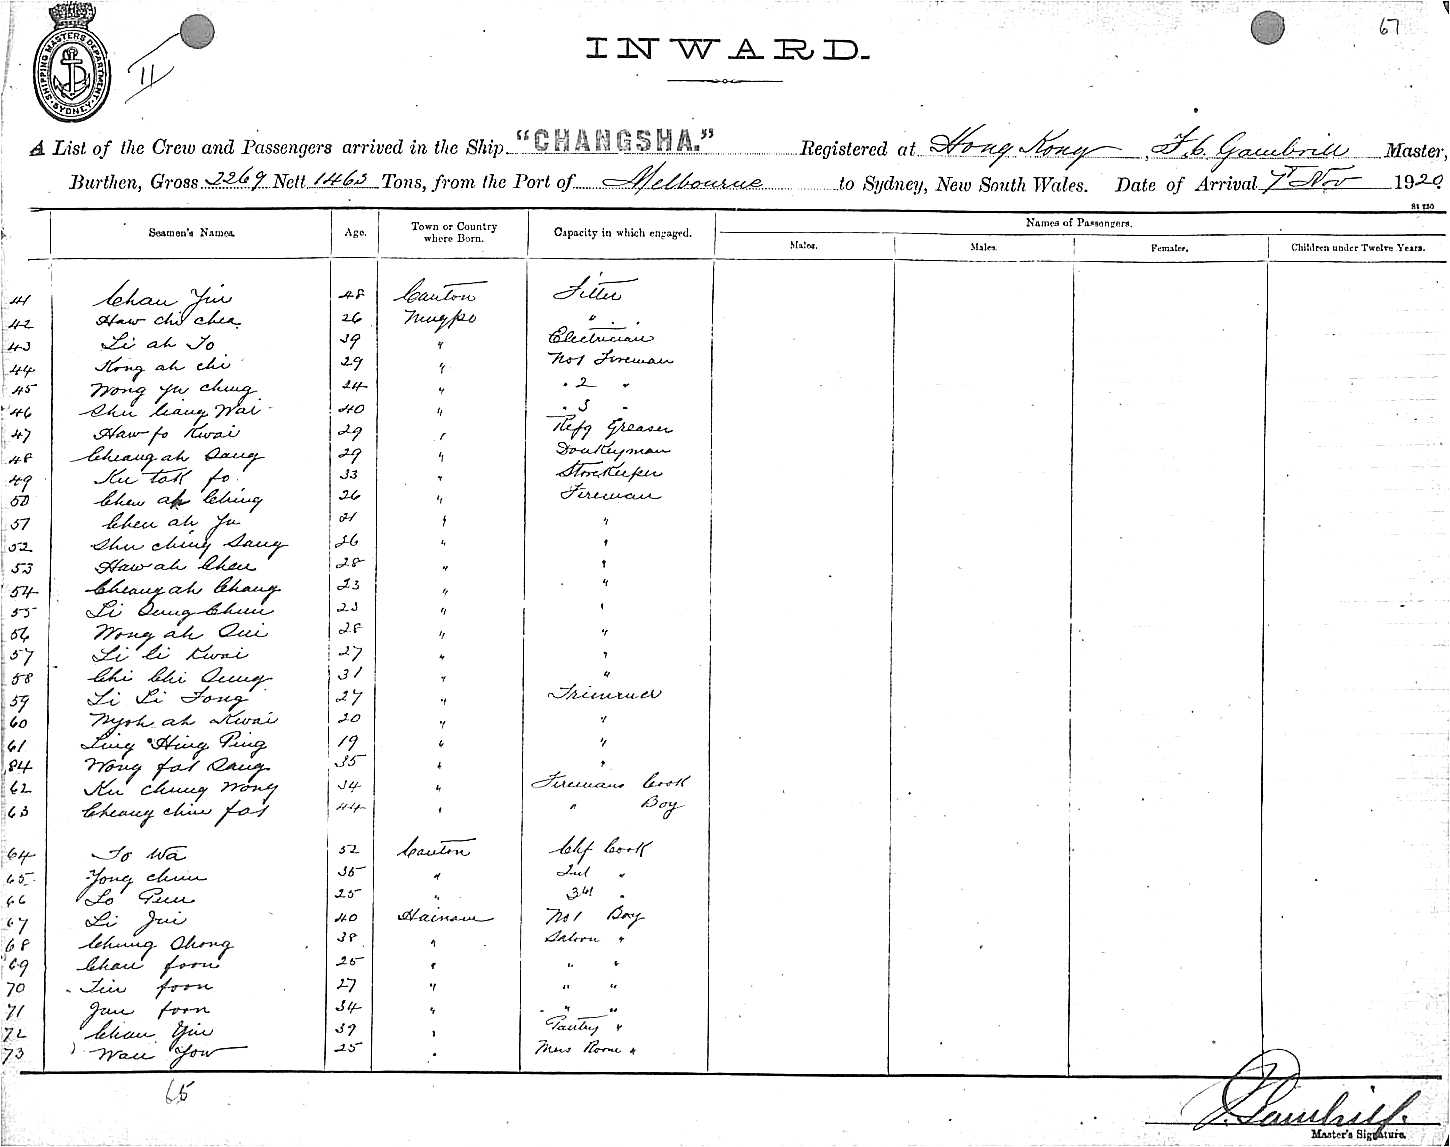 67
SHIPPING MASTERS DEPARTMENT SYDNEY
11
INWARD.
A List of the Crew and Passengers arrived in the Ship "CHANGSHA." Registered at Hong Kong, F. C. Gambrill Master,
Burthen, Gross 2269 Nett 1463 Tons, from the Port of Melbourne to Sydney, New South Wales. Date of Arrival 7th Nov 1920
Seamen's Names. Age. Town or Country where Born. Capacity in which engaged. Names of Passengers.
Males. Males. Females. Children under Twelve Years.
41 Chan Yin 48 Canton Fitter
42 Haw chi chea 26 Ningpo "
43 Li ah To 39 " Electrician
44 Kong ah chi 29 " No1 Fireman
45 Wong yu ching 24 " " 2 "
46 Shu liang Wai 40 " " 3 "
47 Haw fo Kwai 29 " Refg Greaser
48 Cheang ah Sang 29 " Donkeyman
49 Ku tak fo 33 " Storekeeper
50 Chen ah Ching 26 " Fireman
51 Chen ah Yu 21 " "
52 Shu ching Sang 36 " "
53 Haw ah Chen 28 " "
54 Cheang ah Chang 23 " "
55 Li Sung Chun 23 " "
56 Wong ah Sui 28 " "
57 Li li Kwai 27 " "
58 Chi Chi Sung 31 " "
59 Li Li Fong 27 " Trimmer
60 Nyoh ah Kwai 20 " "
61 Ling Hing Ping 19 " "
84 Wong fat Sang 35 " "
62 Ku chung Wong 34 " Firemans Cook
63 Cheang chin fat 44 " " Boy
64 To Wa 52 Canton Chf Cook
65 Yong chun 35 " 2nd "
66 Lo Pun 25 " 3rd "
67 Li Jui 40 Hainam No1 Boy
68 Chung Shong 38 " Saloon "
69 Chan foon 25 " " "
70 Lin foon 27 " " "
71 Jan foon 34 " " "
72 Chan Yin 39 " Pantry "
73 Wan Yow 25 " Mess Room "
65
F. C. Gambrill
Master's Signature.